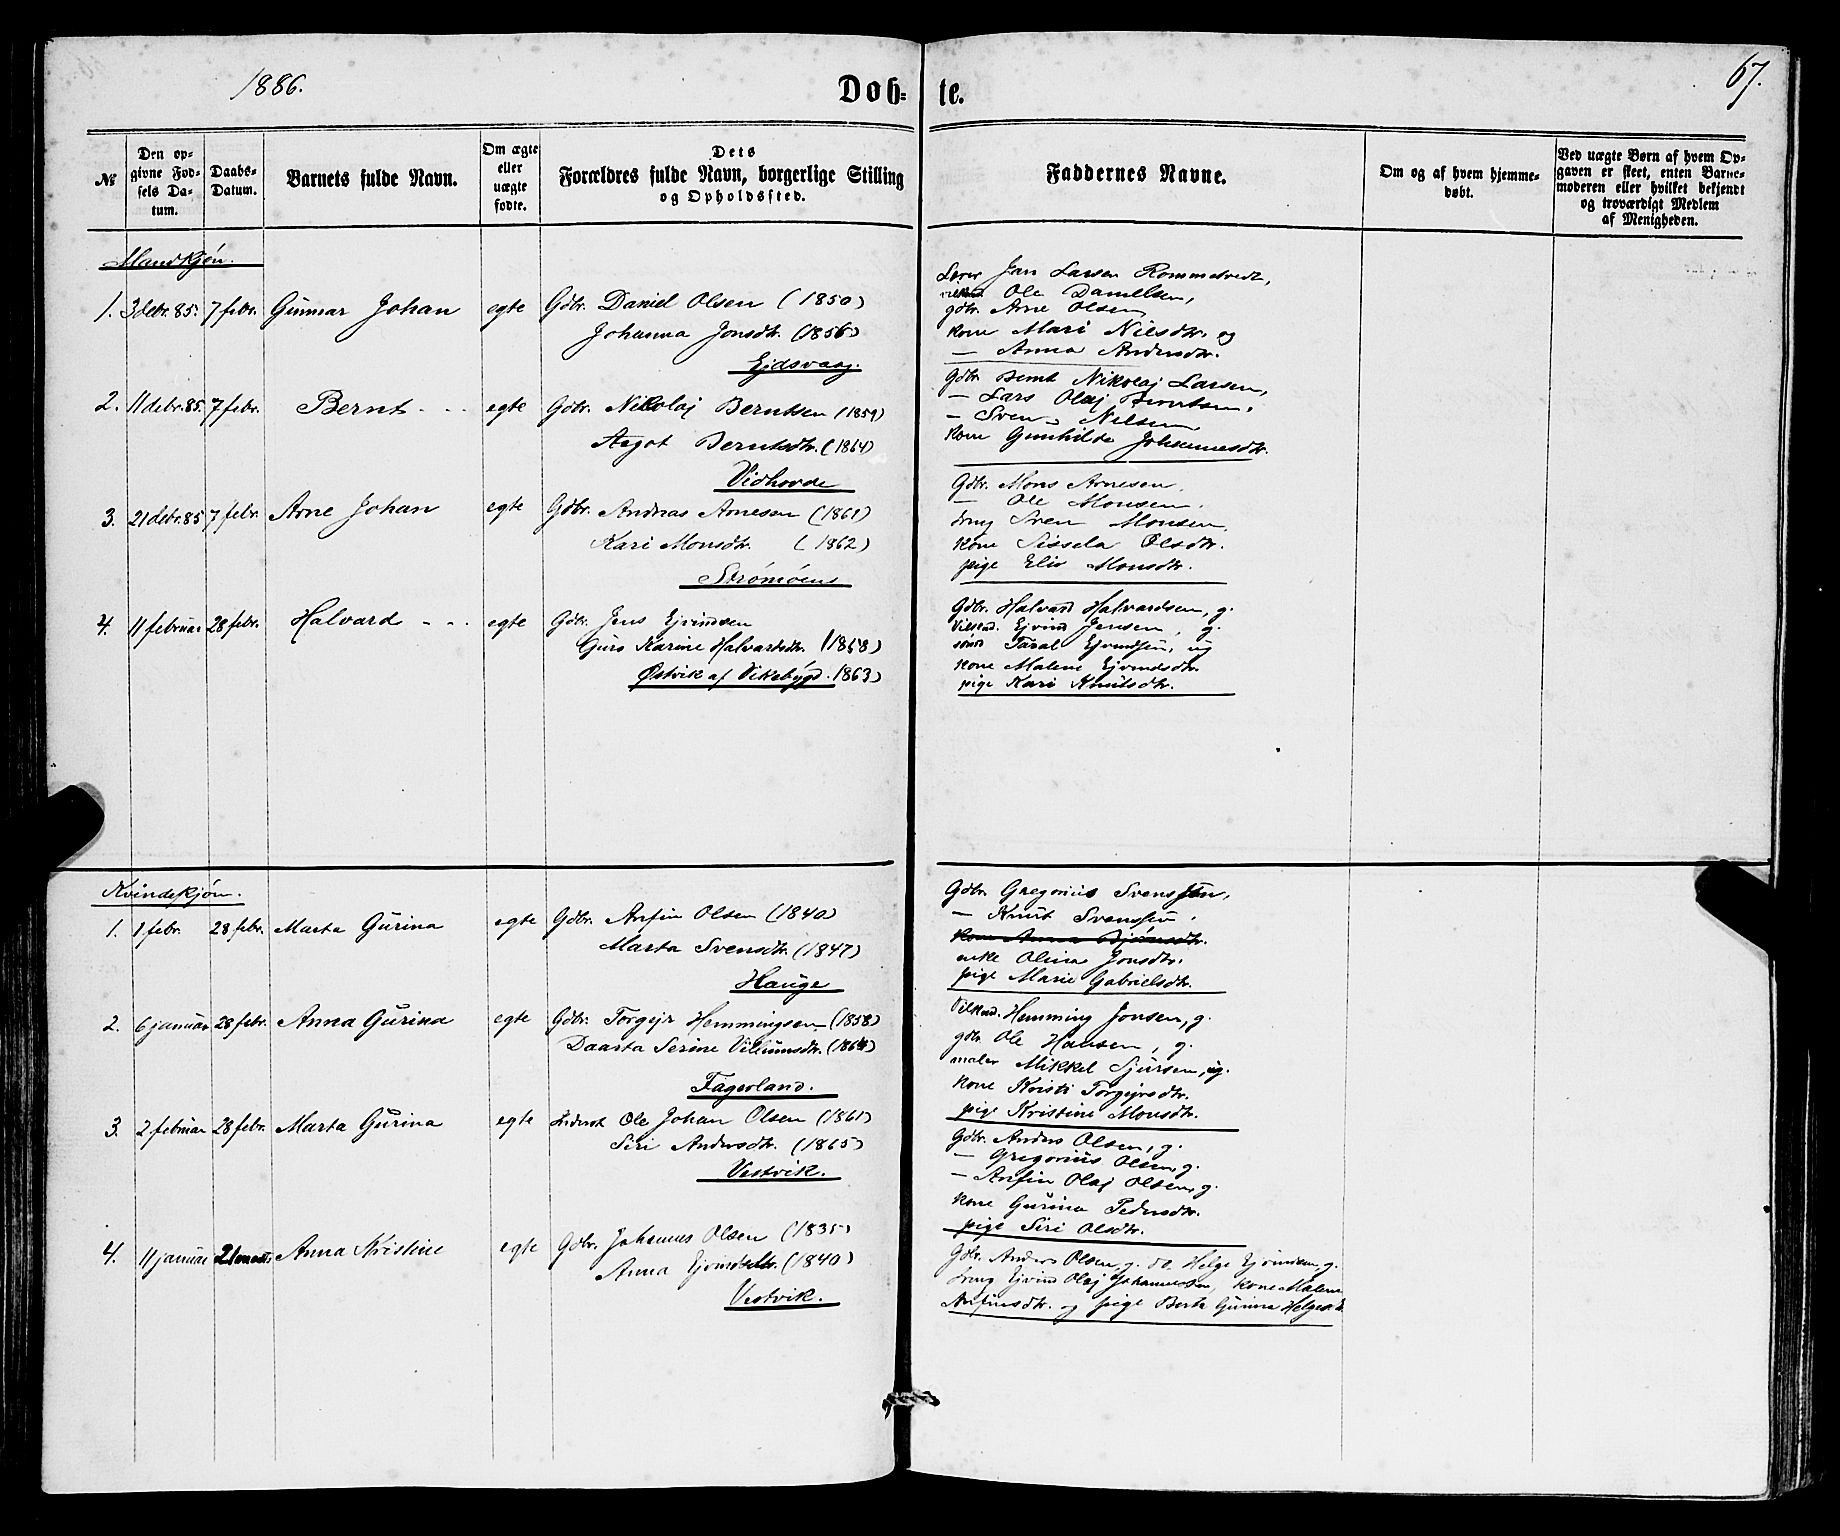 1886.
Døb-
te.
67.
№
Den op-
givne Fød-
sels Da-
tum.
Daabs-
Datum.
Barnets fulde Navn.
Om ægte
eller
uægte
fødte.
Dets
Forældres fulde Navn, borgerlige Stilling
og Opholdssted.
Faddernes Navne.
Om og af hvem hjemme-
døbt.
Ved uægte Børn af hvem Op-
gaven er skeet, enten Barne-
moderen eller hvilket bekjendt
og troværdigt Medlem
af Menigheden.
Mandkjøn.
1. 3 debr. 85. 7 febr. Gunnar Johan egte Gdbr. Daniel Olsen (1850)
Johanna Jonsdtr. (1856)
Ejdsvaag.
Lærer Jan Larsen Rommetvedt,
Ole Danielsen,
gdbr. Arne Olsen
kone Mari Nilsdtr. og
— Anna Andersdtr.
2. 11 debr. 85. 7 febr. Bernt - - - egte Gdbr. Nikolaj Berntsen (1859)
Aagot Berntsdtr. (1864)
Vidhovde
Gdbr. Bernt Nikolaj Larsen,
— Lars Olaj Berntsen,
— Sven Nilsen
kone Gunhilde Johannesdtr.
3. 21 debr. 85 7 febr. Arne Johan egte Gdbr. Andreas Arnesen (1861)
Kari Monsdtr. (1862)
Strømøens
Gdbr. Mons Arnesen,
— Ole Monsen.
dreng Sven Monsen
kone Sissela Olsdtr.
pige Eliv Monsdtr.
4. 11 februar 28 febr. Halvard - - - egte Gdbr. Jens Ejvindsen
Guro Karine Halvardsdtr. (1858)
Østvik af Vikebygd. 1863)
Gdbr. Halvard Halvardsen, g.
Vilkaad. Ejvind Jensen, g.
Taral Ejvindsen, ug
kone Malene Ejvindsdtr.
pige Kari Knutsdtr.
Kvindekjøn.
1. 1 febr. 28 febr. Marta Gurina egte Gdbr. Anfin Olsen (1840)
Marta Svensdtr. (1847)
Hauge
Gdbr. Gregorius Svensen,
— Knut Svensen.
kone Anna Bjørnsdtr.
enke Olina Jonsdtr.
pige Marie Gabrielsdtr.
2. 6 januar 28 febr. Anna Gurina egte Gdbr. Torgejr Hemmingsen (1858)
Daarta Serine Villumsdtr. (1864)
Fagerland.
Vilkaad. Hemming Jonsen, g.
gdbr. Ole Hansen, g.
maler Mikkel Sjursen, ug.
kone Kristi Torgejrsdtr.
pige Kristine Monsdtr.
3. 2 februar 28 febr. Marta Gurina egte Inderst Ole Johan Olsen (1861)
Siri Andersdtr. (1865)
Vestvik.
Gdbr. Anders Olsen, g.
— Gregorius Olsen, g.
— Anfin Olaj Olsen, g.
kone Gurina Pedersdtr.
pige Siri Olsdtr.
4. 11 januar 21 marts Anna Kristine egte Gdbr. Johannes Olsen (1835)
Anna Ejvindsdtr. (1840)
Vestvik.
Gdbr. Anders Olsen, g. do. Helge Ejvindsen, g.
dreng Ejvind Olaj Johannessen, kone Malene
Anfinsdtr. og pige Berta Gurina Helgesdtr